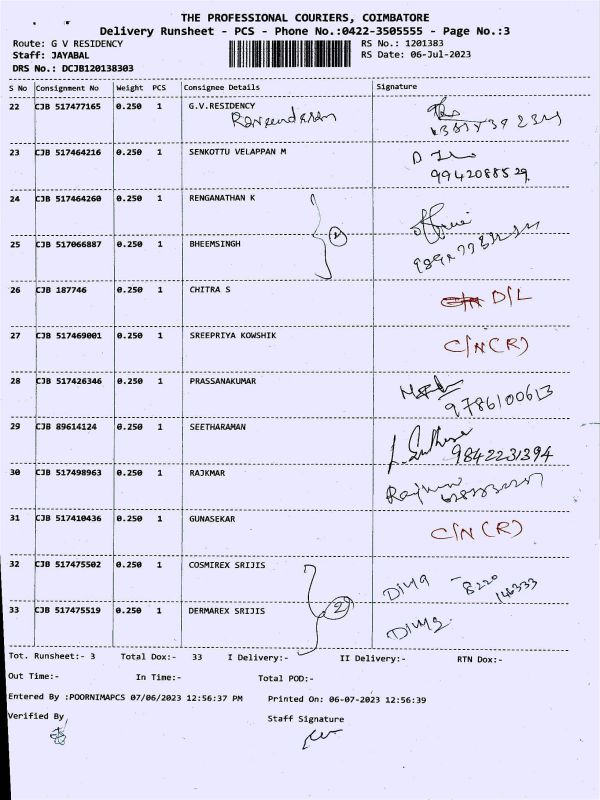 THE PROFESSIONAL COURIERS, COIMBATORE
Delivery Runsheet - PCS - Phone No.:0422-3505555 - Page No.:3
Route: G V RESIDENCY RS No.: 1201383
Staff: JAYABAL RS Date: 06-Jul-2023
DRS No.: DCJB120138303
S No Consignment No Weight PCS Consignee Details Signature
22 CJB 517477165 0.250 1 G.V.RESIDENCY
23 CJB 517464216 0.250 1 SENKOTTU VELAPPAN M
9942088529
24 CJB 517464260 0.250 1 RENGANATHAN K
25 CJB 517066887 0.250 1 BHEEMSINGH
26 CJB 187746 0.250 1 CHITRA S D/L
27 CJB 517469001 0.250 1 SREEPRIYA KOWSHIK C/N(R)
28 CJB 517426346 0.250 1 PRASSANAKUMAR
9786100613
29 CJB 89614124 0.250 1 SEETHARAMAN
9842231394
30 CJB 517498963 0.250 1 RAJKMAR
31 CJB 517410436 0.250 1 GUNASEKAR C/N(R)
32 CJB 517475502 0.250 1 COSMIREX SRIJIS
Divya - 8220
146333
33 CJB 517475519 0.250 1 DERMAREX SRIJIS 2
Divya
Tot. Runsheet:- 3 Total Dox:- 33 I Delivery:- II Delivery:- RTN Dox:-
Out Time:- In Time:- Total POD:-
Entered By :POORNIMAPCS 07/06/2023 12:56:37 PM Printed On: 06-07-2023 12:56:39
Verified By Staff Signature